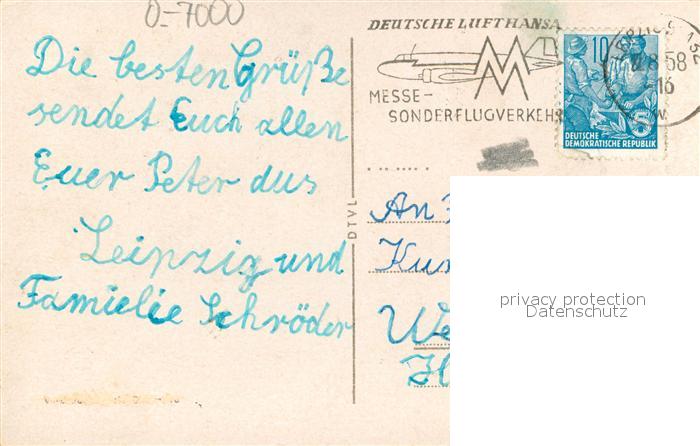 0-7000
DEUTSCHE LUFTHANSA
MESSE-
SONDERFLUGVERKEHR
10
DEUTSCHE
DEMOKRATISCHE REPUBLIK
8.58
-16
Die besten Grüße
sendet Euch allen
Euer Peter aus
Leipzig und
Familie Schröder
DTVL
An
privacy protection
Datenschutz